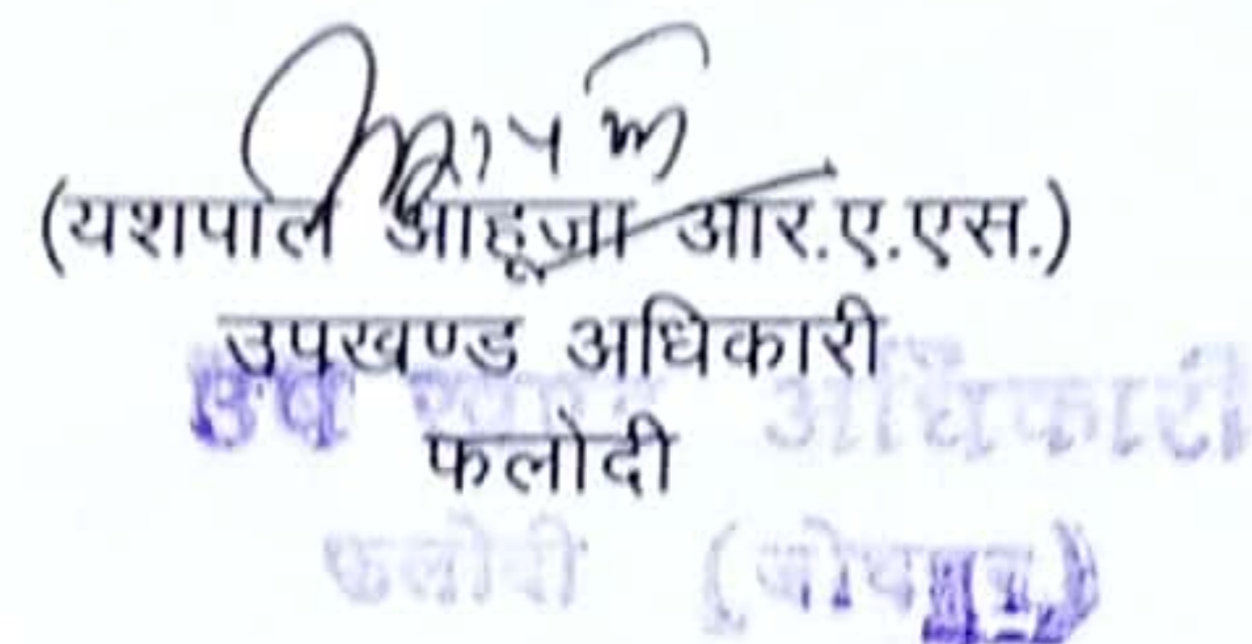 (यशपाल आहूजा आर.ए.एस.)
उपखण्ड अधिकारी
उप खण्ड अधिकारी
फलोदी
फलोदी (जोधपुर)